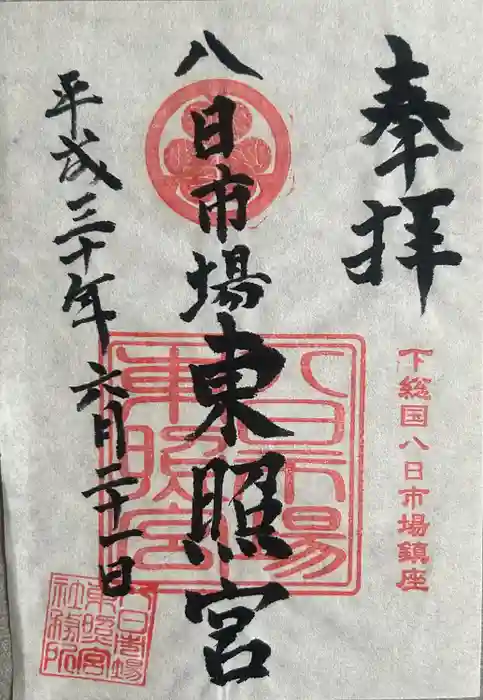 奉拝
下総国八日市場鎮座
八日市場東照宮
八日市場東照宮
平成三十年六月二十一日
八日市場
東照宮
社務所